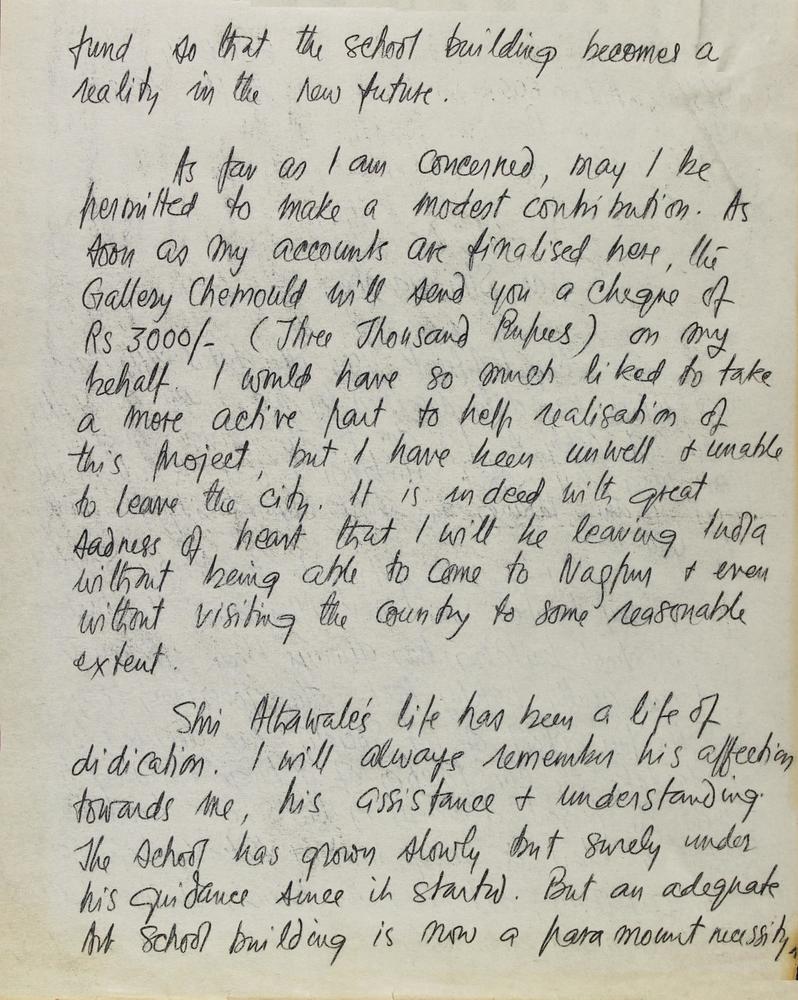 fund so that the school building becomes a
reality in the new future.
As far as I am concerned, may I be
permitted to make a modest contribution. As
soon as my accounts are finalised here, the
Gallery Chemould will send you a cheque of
Rs 3000/- (Three Thousand Rupees) on my
behalf. I would have so much liked to take
a more active part to help realisation of
this project, but I have been unwell & unable
to leave the city. It is indeed with great
sadness of heart that I will be leaving India
without being able to come to Nagpur & even
without visiting the country to some reasonable
extent.
Shri Athawale's life has been a life of
didication. I will always remember his affection
towards me, his assistance & understanding.
The school has grown slowly but surely under
his guidance since it started. But an adequate
Art school building is now a paramount necessity,